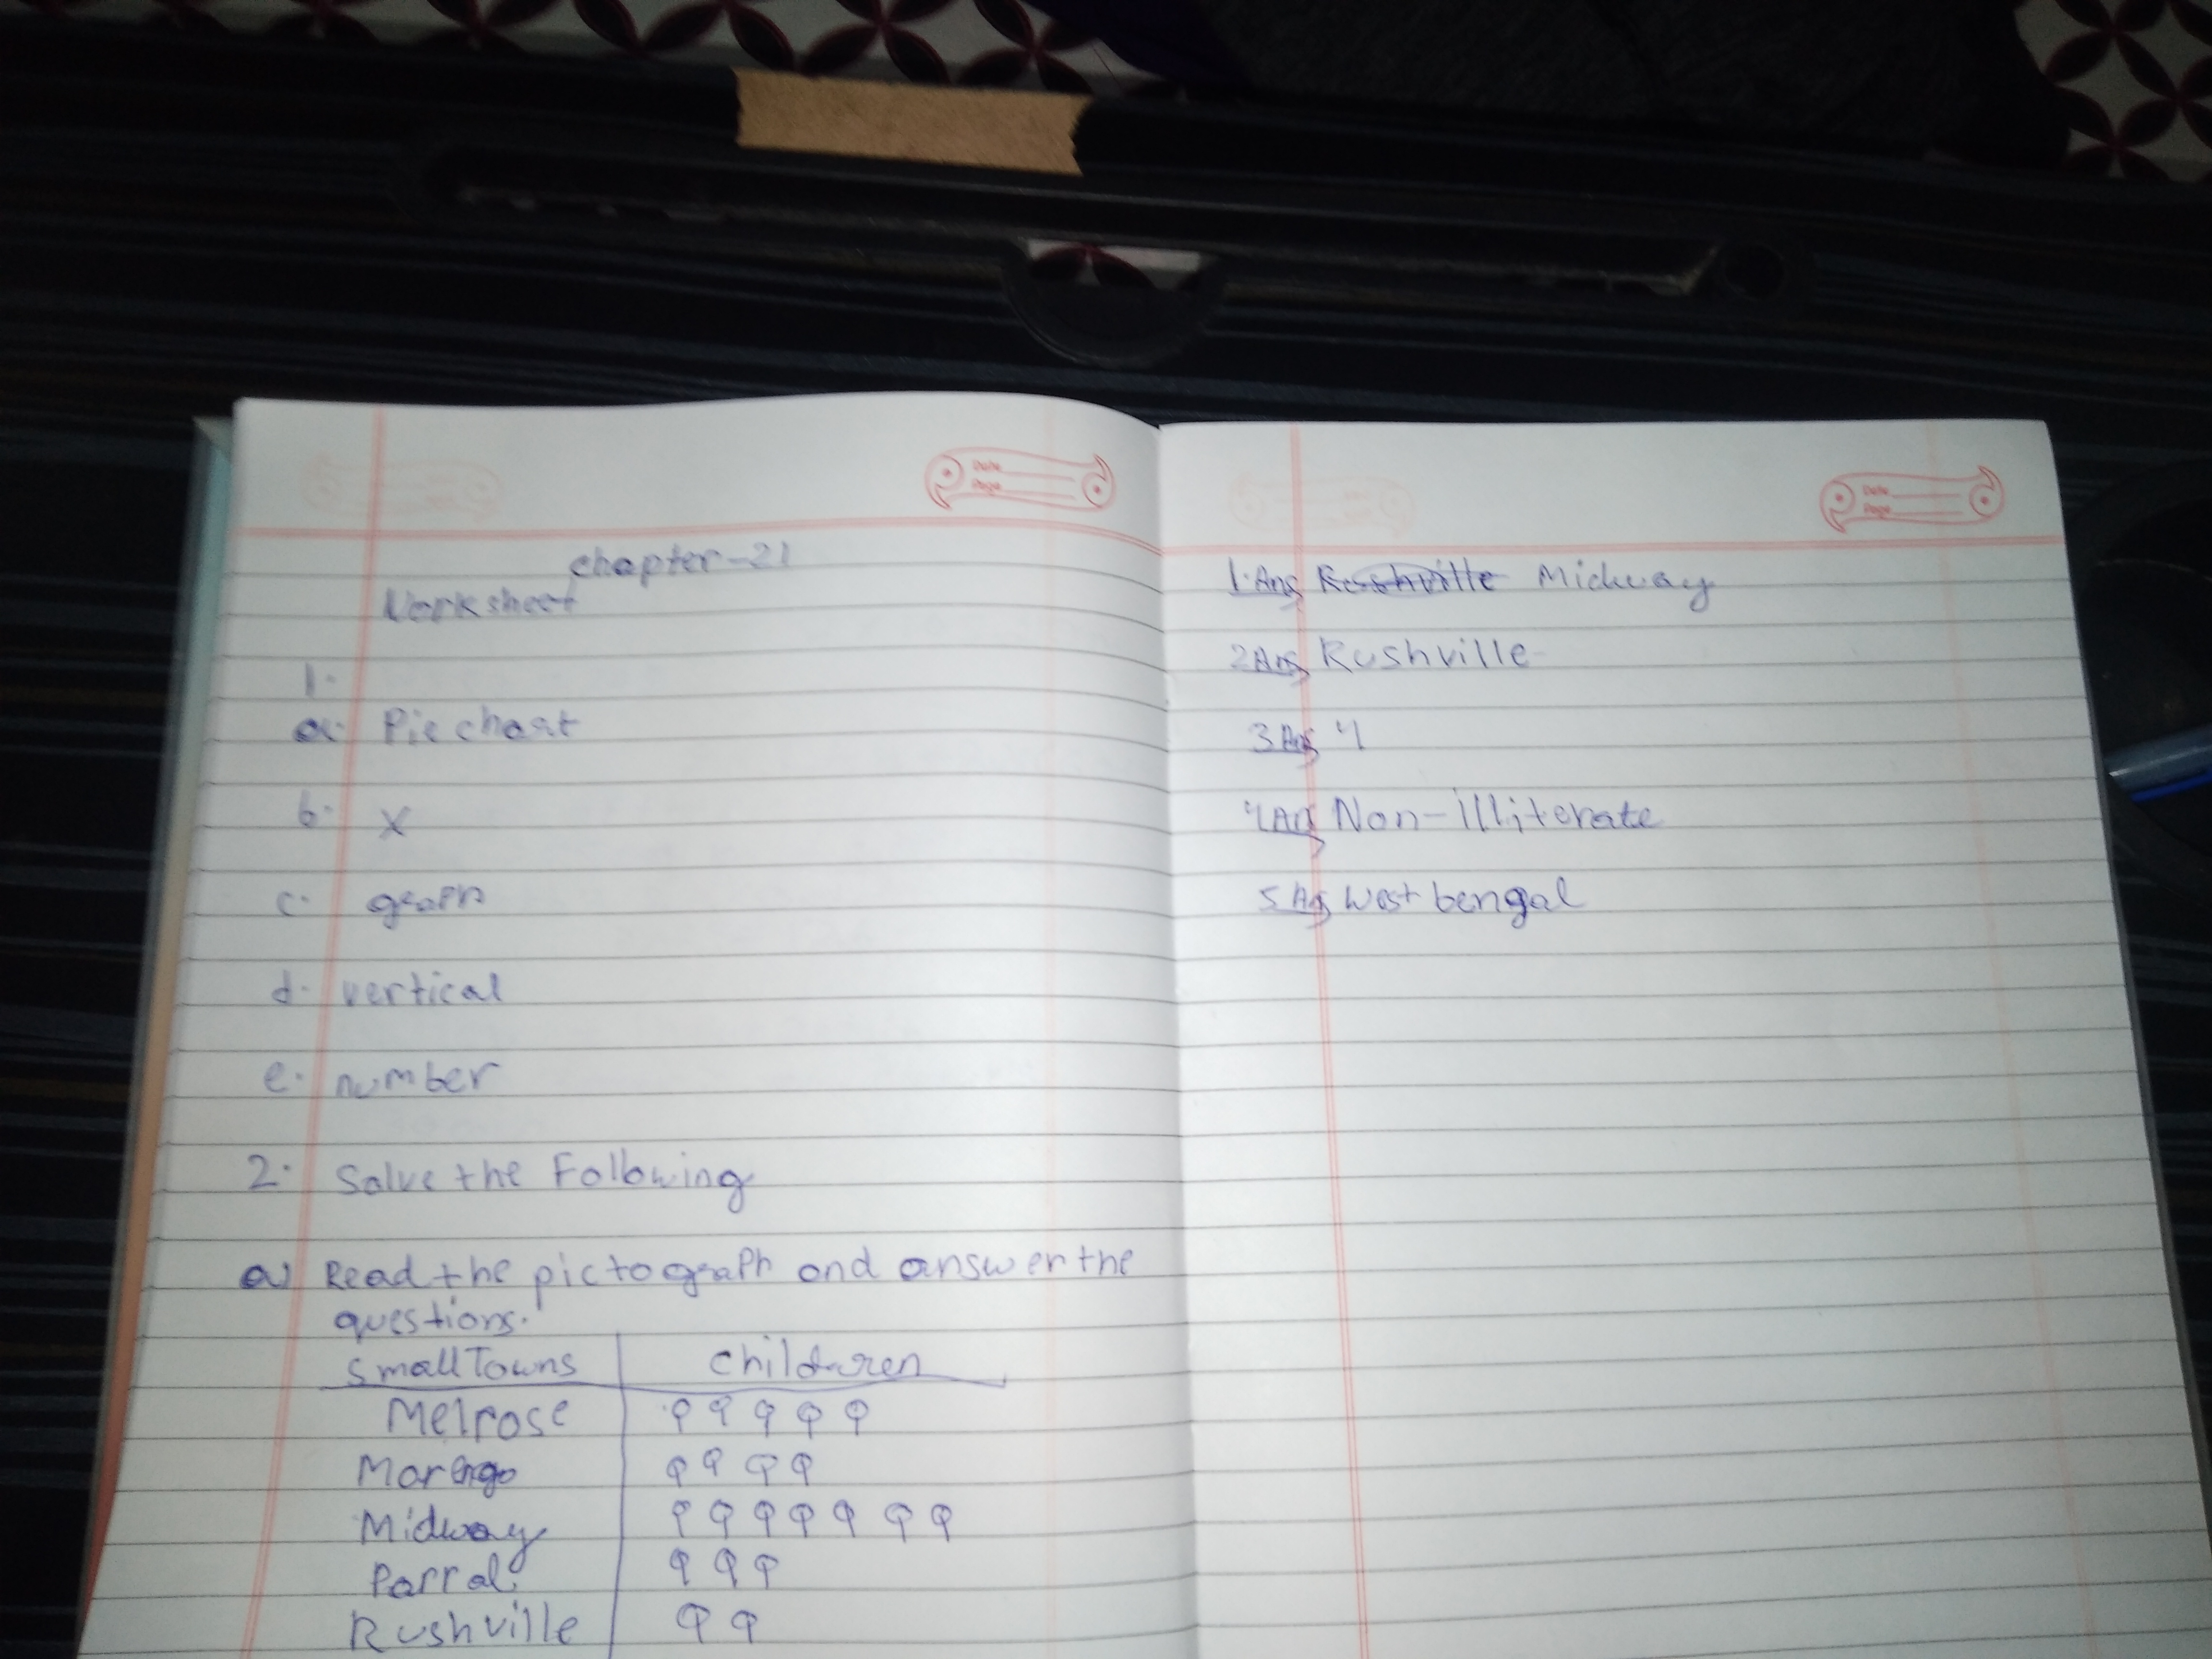 Date
Page
chapter-21
Worksheet
1.
a. Pie chart
b. X
c. graph
d. vertical
e. number
2. Solve the Following
a) Read the pictograph and answer the
questions.
Small Towns | children
Melrose
Marengo
Midway
Parral
Rushville
Date
Page
1. Ans Rushville Midway
2 Ans Rushville
3 Ans 4
4 Ans Non-illiterate
5 Ans West bengal